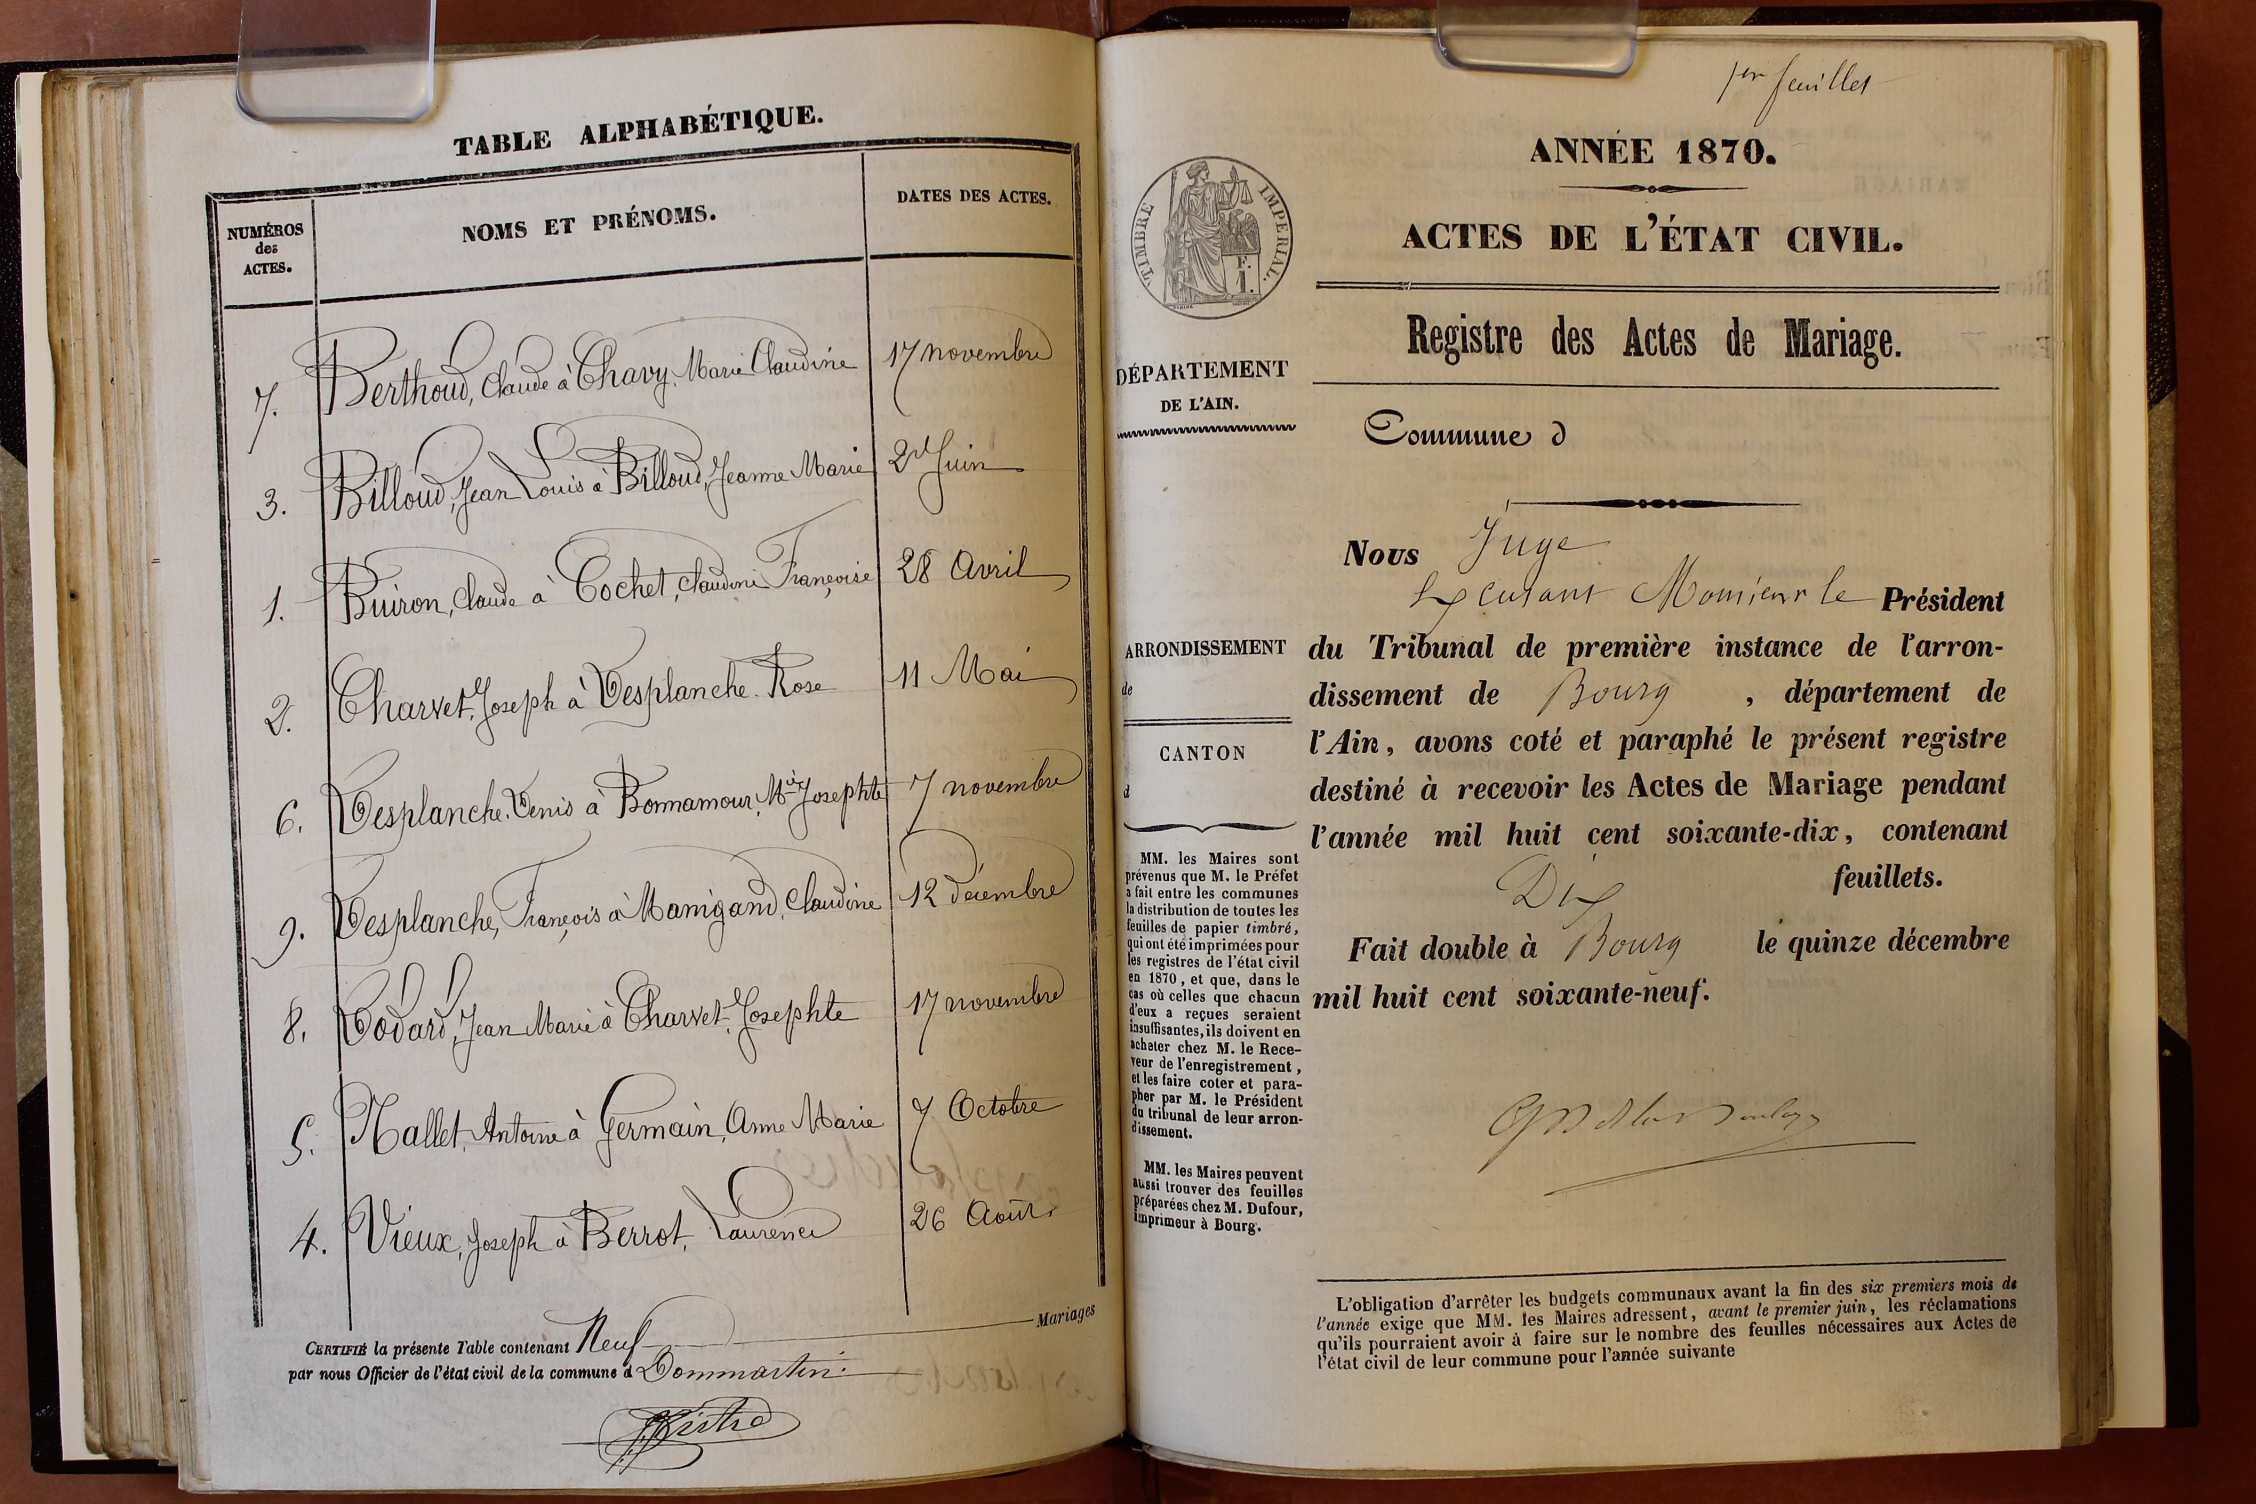 TABLE ALPHABÉTIQUE.
NUMÉROS
des
ACTES.
NOMS ET PRÉNOMS.
DATES DES ACTES.
7. Berthoud, Claude à Chavy, Marie Claudine 17 novembre
3. Billoud, Jean Louis à Billoud, Jeanne Marie 2 Juin
1. Buiron, Claude à Cochet, Claudine Françoise 28 Avril
2. Charvet, Joseph à Desplanche Rose 11 Mai
6. Desplanche Denis à Bonnamour, Mie Josephte 7 novembre
9. Desplanche, François à Manigand, Claudine 12 Décembre
8. Dodard, Jean Marie à Charvet, Josephte 17 novembre
5. Nallet, Antoine à Germain, Anne Marie 7 Octobre
4. Vieux, Joseph à Berrot, Laurence 26 Août
CERTIFIÉ la présente Table contenant Neuf Mariages
par nous Officier de l'état civil de la commune d Dommartin.
1er feuillet
ANNÉE 1870.
ACTES DE L'ÉTAT CIVIL.
TIMBRE IMPÉRIAL.
F.
1.
Registre des Actes de Mariage.
DÉPARTEMENT
DE L'AIN.
Commune d
Nous Juge
Excusant Monsieur le Président
du Tribunal de première instance de l'arron-
dissement de Bourg , département de
l'Ain, avons coté et paraphé le présent registre
destiné à recevoir les Actes de Mariage pendant
l'année mil huit cent soixante-dix, contenant
Dix feuillets.
Fait double à Bourg le quinze décembre
mil huit cent soixante-neuf.
ARRONDISSEMENT
de
CANTON
d
MM. les Maires sont
prévenus que M. le Préfet
a fait entre les communes
la distribution de toutes les
feuilles de papier timbré,
qui ont été imprimées pour
les registres de l'état civil
en 1870, et que, dans le
cas où celles que chacun
d'eux a reçues seraient
insuffisantes, ils doivent en
acheter chez M. le Rece-
veur de l'enregistrement,
et les faire coter et para-
pher par M. le Président
du tribunal de leur arron-
dissement.
MM. les Maires peuvent
aussi trouver des feuilles
préparées chez M. Dufour,
imprimeur à Bourg.
L'obligation d'arrêter les budgets communaux avant la fin des six premiers mois de
l'année exige que MM. les Maires adressent, avant le premier juin, les réclamations
qu'ils pourraient avoir à faire sur le nombre des feuilles nécessaires aux Actes de
l'état civil de leur commune pour l'année suivante